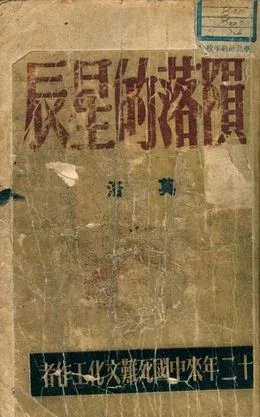 隕落的星辰
莫洛
十二年來中國死難文化工作者